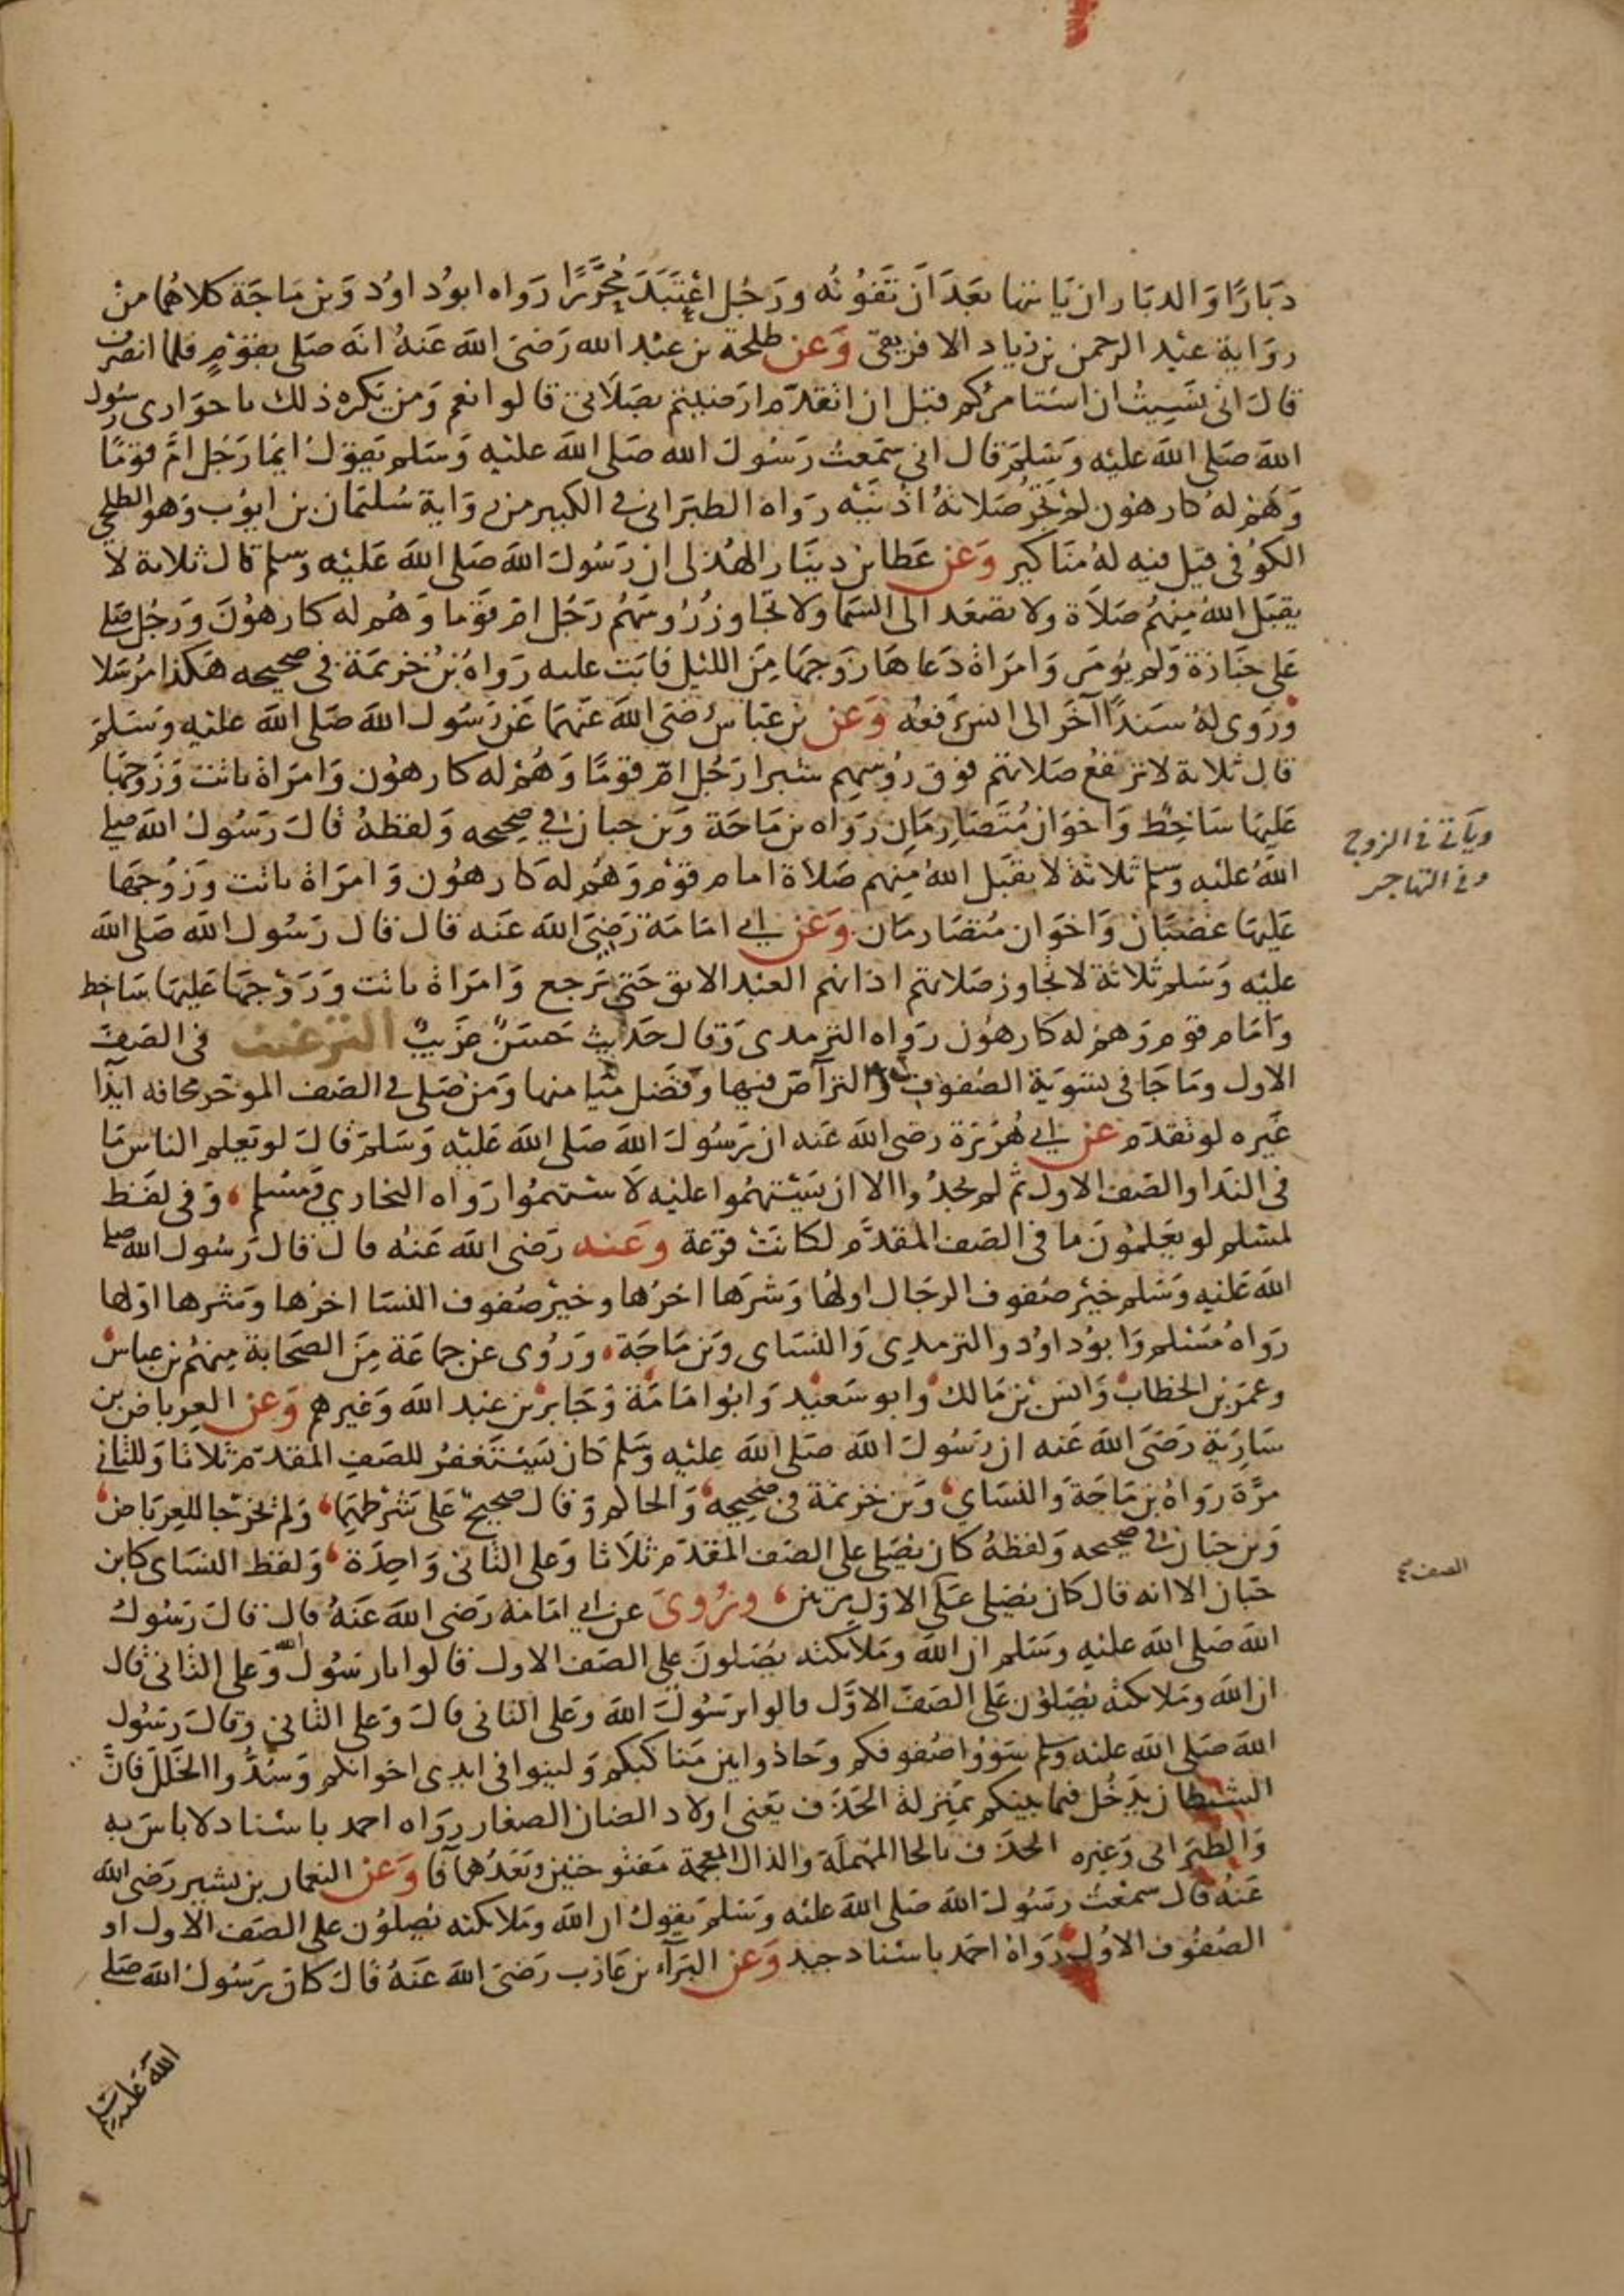 دبارًا وَالدبَار ان يَاتيها بعَدَ اَن تَفوُته ورَجُل اعْتبَدَ مُحرَّرًا رَواه ابوُداوُد وَبن مَاجَة كلاهُما من
روَاية عبْد الرحمن بن زياد الافريقى وَعن طلحة بن عبْد الله رَضىَ اللهَ عَنهُ انَه صَلى بقوْمٍ فلما انصرف
قالَ انى نسَيتُ ان استامركم قبْل ان اتقدّم ارَضيتم بصَلاتى قالوا نعم وَمن يكره ذلك ياحوَارى رسُول
اللهَ صَلى اللهَ عليْه وَسَلمَ قال انى سَمعتُ رَسُولَ الله صَلى اللهَ عليْه وَسَلم يَقوُلُ ايمَا رَجُل امَّ قومًا
وَهُمْ لهُ كارهُون لم تجُز صَلاتهُ اذنيَه رَواهُ الطبَرانى فى الكبير من روَاية سُليمَان بن ايوُب وَهوَ الطلحى
الكوُفى قيل فيه لهُ مَناكير وَعن عَطا بن دينَار الهُذلى ان رَسُولَ اللهَ صَلى اللهَ عَليْه وسلم قال ثلاثة لاَ
يقبَل اللهُ مِنهُم صَلاَة ولا تصْعَد الى السَما ولا تجَاوزُ رُوسَهُم رَجُل امّ قوَمًا وَهُم له كارهوُنَ وَرَجُل صَلى
عَلى جنَازة وَلم يوُمَر وَامرَاة دَعَاهَا زَوجهَا مِنَ الليْل فابَت عليه رَواهُ بنُ خزيمَة فى صحيحه هَكذا مرُسَلا
وَرَوى لهُ سَندًا آخَر الى انس يرَفعُه وَعن بن عَبَاس رَضىَ اللهَ عَنهمَا عَن رَسُول اللهَ صَلى اللهَ عليْه وَسَلمَ
قال ثلاثة لا ترتفعُ صَلاتهم فوق رُوسهم شبرا رَجُل امّ قومًا وَهُمْ له كارهوُن وَامرَاة باتت وَزَوجهَا
عَليَها سَاخِط وَاخوَان مُتَصَارِمَانِ رَوَاه بن مَاجَة وَبن حبان فى صحيحه وَلفظهُ قالَ رَسُولُ اللهَ صلى
اللهُ عليْه وسلم ثلاثة لا يقبَل اللهُ مِنهم صَلاَة امام قوْم وَهُم له كارهوُن وَامرَاة باتت وَزَوُجهَا
عَليَها غضبَان وَاخوَان مُتصَارمَان وَعَن ابى امَامَة رَضِىَ اللهَ عَنه قال قال رَسُول اللهَ صَلى اللهَ
عليْه وَسَلم ثلاثة لا تجَاوز صَلاتهم اذانهم العبْد الابق حَتى يَرجع وَامرَاة باتت وَزَوْجهَا عَليَها سَاخط
وَامَام قوم وَهمْ له كارهُون رَواه الترمدى وَقال حَديث حَسَن غرَيبٌ الترغيب فى الصَفَ
الاول ومَا جَا فى تسَوية الصُفوف وَالتراصّ فيها وفَضل ميَامنها وَمنْ صَلى فى الصَف الموخر مخافة ايذا
غَيره لو تقدَم عَن ابى هُرَيرَة رضى اللهَ عَنه ان رَسُولَ اللهَ صَلى اللهَ عَليْه وَسَلمَ قالَ لو يعَلم الناسُ مَا
فى النَدا والصَف الاول ثم لم يجدُوا الا ان يَسْتهمُوا عليْه لاَستهمُوا رَواه البخارى وَمسُلم وَفى لفَظ
لمسْلم لو يعَلمُونَ ما فى الصَف المقدَّم لكانتْ قرْعة وعَنه رَضى اللهَ عَنهُ قالَ قالَ رَسُول الله صلى
اللهَ عَليْه وَسَلم خيْر صَفوف الرجَال اولهُا وَشرهَا اخرُها وخيرْ صُفوف النسَا اخرُها وَشرها اولها
رَواهُ مُسْلم وَابوُداوُد والترمدِى وَالنسَاى وَبن مَاجَة وَرُوى عن جماعَة مِنَ الصَحَابة مِنهُم بن عباس
وعمَر بن الخطابْ وَانس بن مَالك وابو سَعيْد وَابوُامَامَة وَجَابر بن عَبد اللهَ وَغيرهم وَعن العِرباض بن
سَارِيَة رَضىَ اللهَ عَنه ان رَسُولَ اللهَ صَلى اللهَ عليْه وسَلم كان يَسْتَغفرُ للصَفِ المُقدّم ثلاثا وَللثَانى
مرَّة رَوَاهُ بن مَاجَة وَالنسَاي وَبن خزيمَة فى صحيحه وَالحاكم وَقال صحيحٌ عَلى شَرْطهِمَا وَلم يخرجَا للعِربَاض
وَبن حبَان فى صحيحه وَلفظهُ كان يُصَلى عَلى الصَف المقدّم ثلاَثا وَعلى الثانى وَاحِدَة وَلفظ النسَاى كابن
حبَان الا انه قال كان يُصَلى عَلى الاوّل مرتين ورُوىَ عن ابى امَامَة رَضى اللهَ عَنهُ قالَ قالَ رَسُولُ
اللهَ صَلى اللهَ عليْه وَسَلم ان اللهَ وَملائكته يُصَلونَ على الصَف الاول قالوا يارَسُولُ الله وَعَلى الثانى قال
ان اللهَ ومَلائكته يُصَلوُن عَلى الصَفَ الاوَّل قالوا يرَسُولَ اللهَ وَعَلى الثانى قالَ وَعلى الثانى وَقالَ رَسُول
اللهَ صَلى اللهَ عليْه وسَلم سَووُا صُفوفكم وَحَاذوا بين مَناكبكم وَلينوا فى ايدى اخوانكم وَسُدُّوا الخَلل فانَّ
الشيْطان يدَخُل فيما بينكم بمَنزلة الحَذف يَعنى اولاد الضان الصغار رَواه احمد باسْناد لا باسَ به
وَالطبَرانى وَغيره الحذَف بالحا المهملَة وَالذال المعجمة مَفتوحَتين وبَعَدُهما فا وَعن النعمان بن بشير رَضى الله
عَنهُ قال سمَعْت رسَولَ اللهَ صَلى اللهَ عليْه وَسَلم يَقولُ ان اللهَ وَملائكته يُصلوُن على الصَف الاول او
الصُفوُف الاوُل رَواهُ احمَد باسْناد جيد وَعَن البَرآء بن عَازب رَضىَ اللهَ عَنهُ قالَ كانَ رَسُولُ اللهَ صَلى
ويَأتى فى الزوج
وفى التهاجر
الصف
اللهَ عَليه